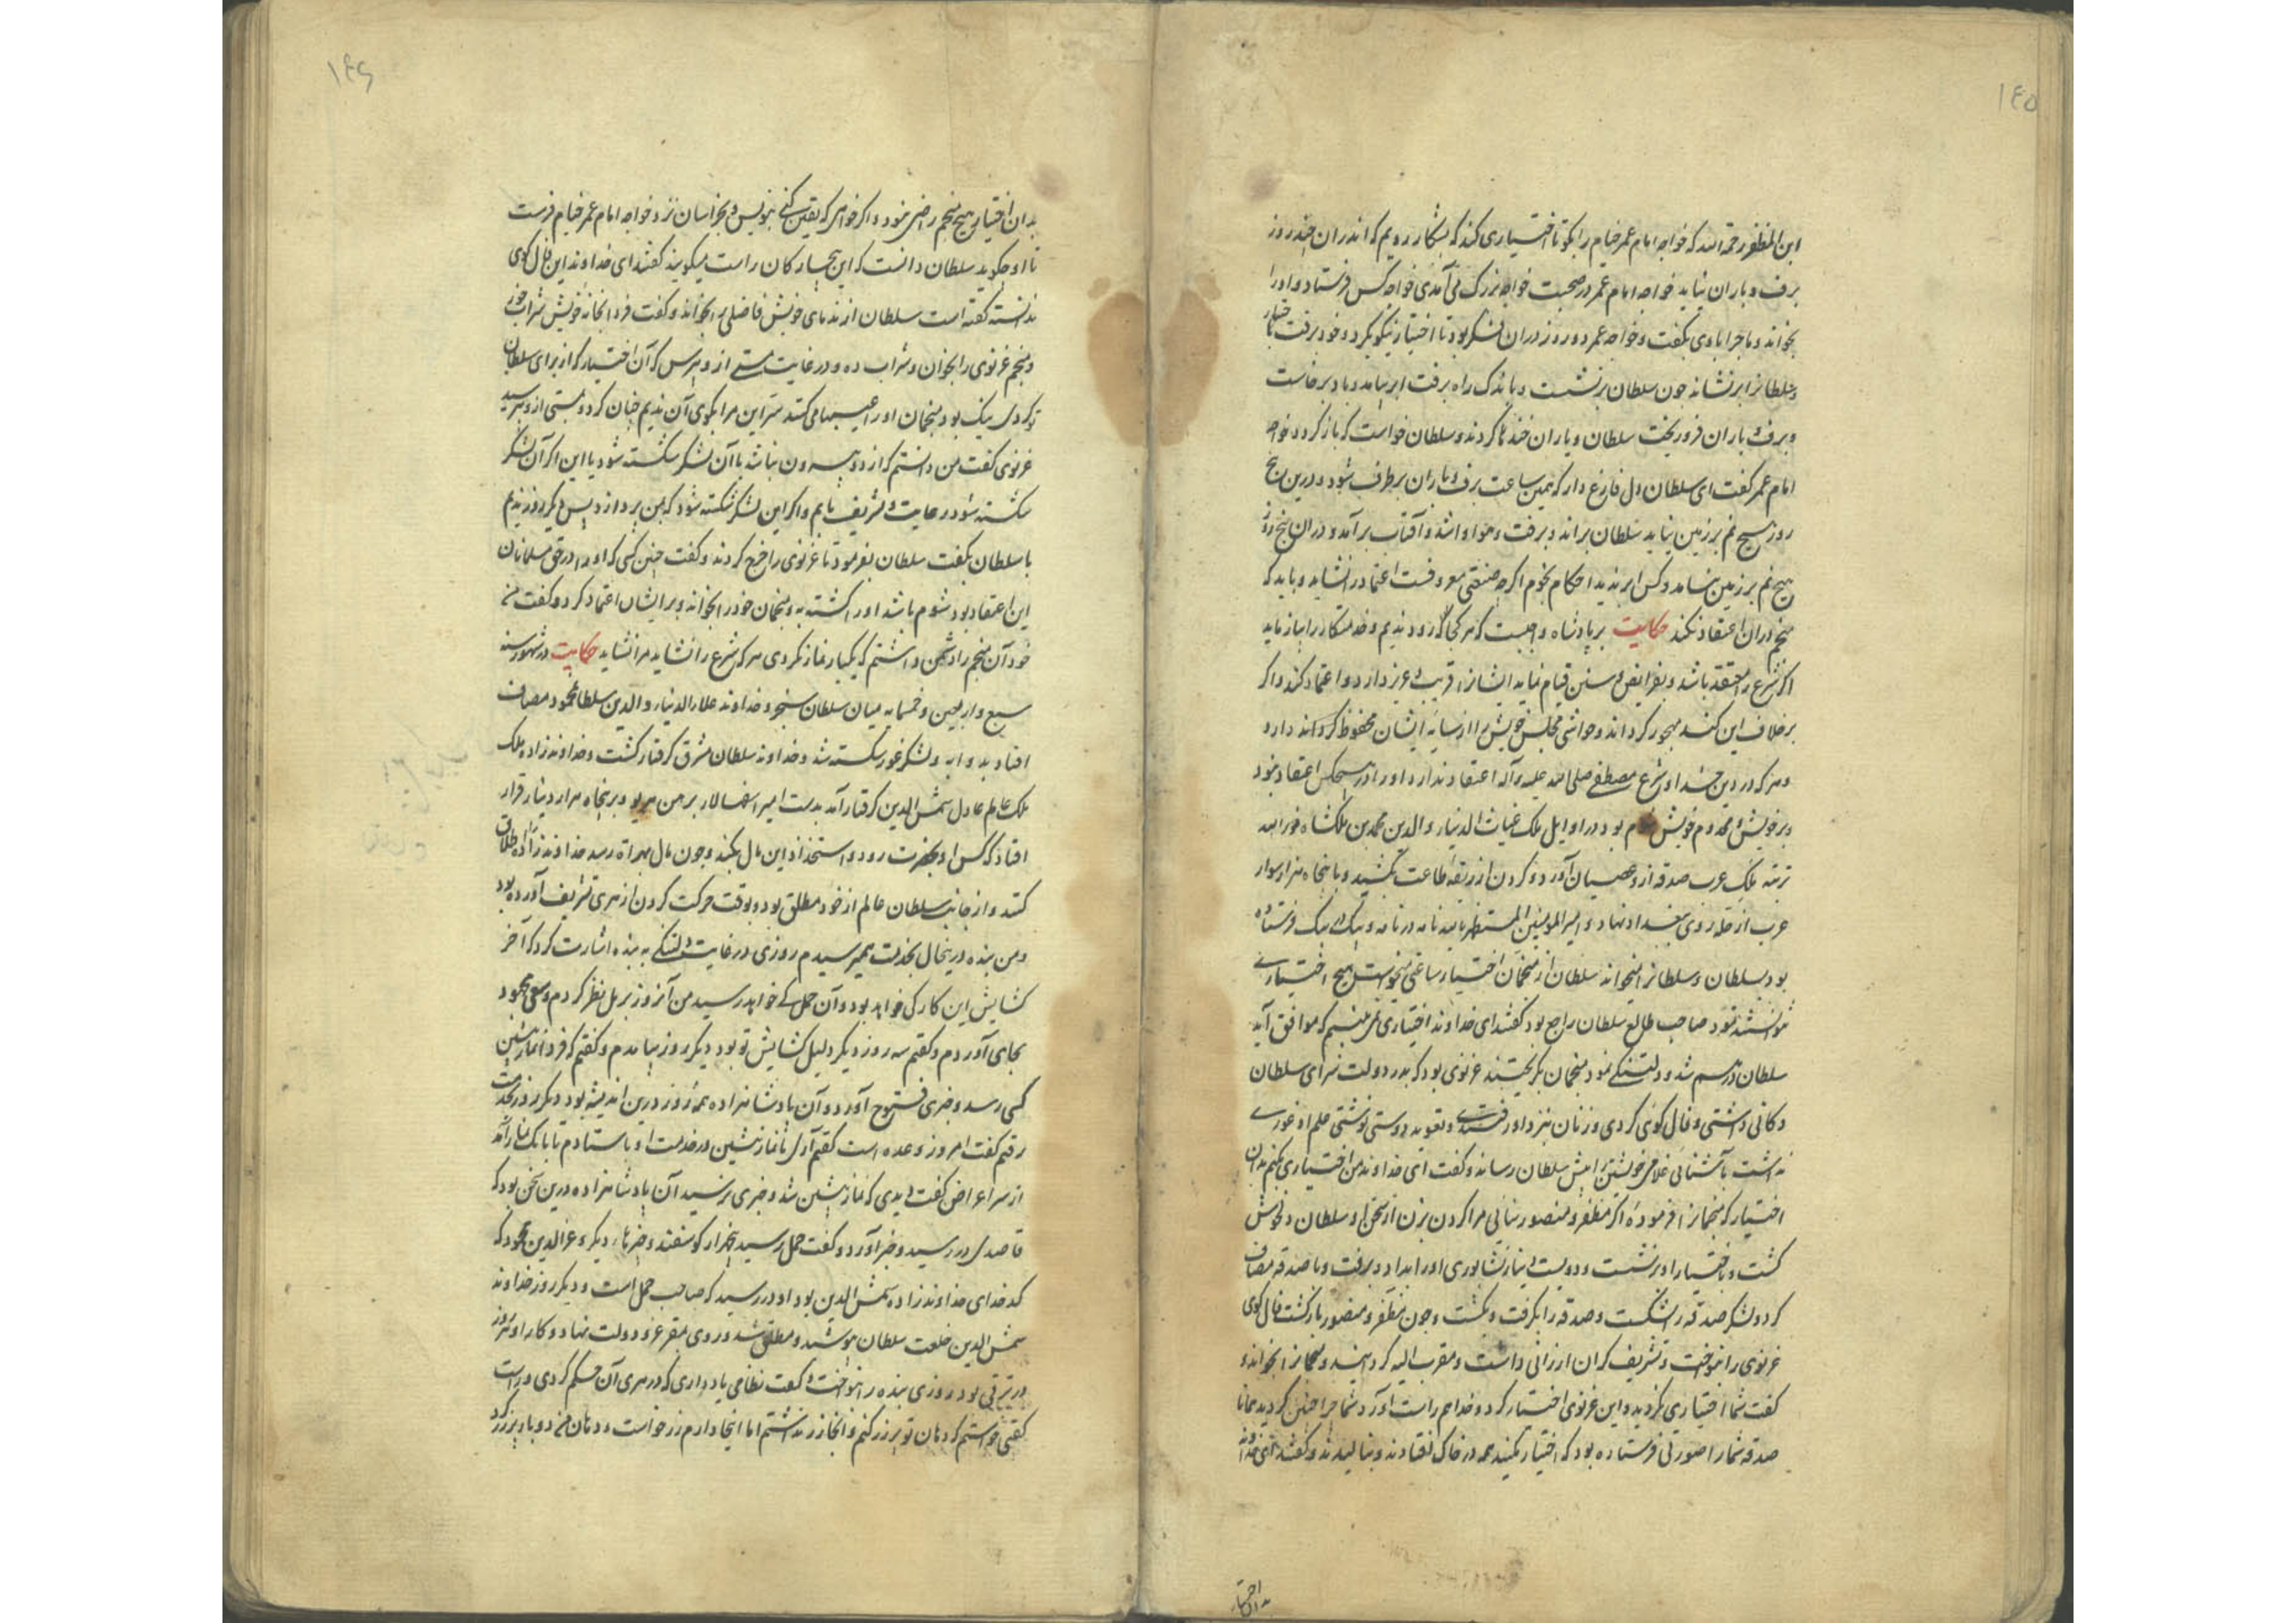 ۱۴۵
ابن المظفر رحمه الله که خواجه امام عمر خیام را بکو تا اختیاری کند که بشکار رویم که اندران چند روز
برف و باران نیاید خواجه امام عمر در صحبت خواجه بزرک می آمدی خواجه کس فرستاد و او را
بخواند و ماجرا با وی بکفت و خواجه عمر دو روز در ان لشکر بود تا اختیار نیکو بکرد و خود برفت با اختیار
و سلطانرا برنشاند چون سلطان برنشست و باندک راه برفت ابر بیامد و باد برخاست
و برف و باران فروریخت سلطان و یاران خندها کردند و سلطان خواست که باز کردد خواجه
امام عمر کفت ای سلطان دل فارغ دار که همین ساعت برف و باران برطرف شود و درین پنج
روز هیچ نم بر زمین نیاید سلطان براند و برفت و هوا وا شد و آفتاب برآمد و دران پنج روز
هیچ نم بر زمین نیامد و کس ابر ندید احکام نجوم اکرچه صنعتی معروفست اعتماد را نشاید و باید که
منجم دران اعتقاد نکند حکایت بر پادشاه واجبست که هر کجا که رود ندیم و خدمتکار را بیازماید
اکر شرع را معتقد باشد و بفرایض و سنن قیام نماید ایشانرا قریب و عزیز دارد و اعتماد کند و اکر
برخلاف این کند مهجور کرداند و حواشی مجلس خویش را از سایه ایشان محفوظ کرداند دارد
و هر که در دین خدا و شرع مصطفی صلی الله علیه و آله اعتقاد ندارد او را در هیچکس اعتقاد نبود
و بر خویش و مخدوم خویش شوم بود در اوایل ملک غیاث الدنیا و الدین محمد بن ملکشاه نور الله
تربته ملک عرب صدقه از در عصیان آورد و کردن از ربقه طاعت بکشید و با پنجاه هزار سوار
عرب از حله روی ببغداد نهاد و امیر المومنین المستظهر بالله نامه در نامه و پیک در پیک فرستاده
بود بسلطان و سلطانرا میخواند سلطان از منجمان اختیار ساعتی میخواست هیچ اختیاری
نتوانستند نمود صاحب طالع سلطان راجع بود کفتند ای خداوند اختیاری نمی بینیم که موافق آید
سلطان درهم شد و دلتنکی نمود منجمان بکریختند غزنوی بود که بدر دولت سرای سلطان
دکانی داشتی و فال کوئی کردی و زنان بنزد او رفتندی و تعویذ دوستی نوشتی علم او غوری
نداشت بآشنائی غلامی خویشتن را پیش سلطان رساند و کفت ای خداوند من اختیاری بکنم بدان
اختیار که منجمانرا فرموده اکر مظفر و منصور نیائی مرا کردن بزن از سخن او سلطان دلخوش
کشت و باختیار او برنشست و دویست دینار نشابوری او را بداد و برفت و با صدقه مصاف
کرد و لشکر صدقه را شکست و صدقه را بکرفت و بکشت و چون مظفر و منصور بازکشت فال کوی
غزنوی را بنواخت و تشریف کران ارزانی داشت و مقرب الیه کردانید و منجمانرا بخواند و
کفت شما اختیاری نکردید و این غزنوی اختیار کرد و خدا هم راست آورد شما چرا چنین کردید همانا
صدقه شما را صورتی فرستاده بود که اختیار نکنید همه در خاک افتادند و بنالیدند و کفتند ای خداوند
بدان اختیار
۱۴۶
بدان اختیار هیچ منجم راضی نبود و اکر خواهی که یقین کنی بنویس و بخراسان نزد خواجه امام عمر خیام فرست
تا او چکوید سلطان دانست که این بیچارکان راست میکویند کفتند ای خداوند این فال کوی
ندانسته کفته است سلطان از ندمای خویش فاضلی را بخواند و کفت فردا بخانه خویش شراب خور
و منجم غزنوی را بخوان و شراب ده و در غایت مستی از و بپرس که آن اختیار که از برای سلطان
تو کردی نیک بود منجمان او را عیبها می کنند سر این مرا بکوی آن ندیم چنان کرد و بمستی از و بپرسید
غزنوی کفت من دانستم که از دو بیرون نباشد یا آن لشکر شکسته شود یا این اکر آن لشکر
شکسته شود رعایت و تشریف یابم و اکر این لشکر شکسته شود که بمن پردازد پس دیکر روز ندیم
با سلطان بکفت سلطان بفرمود تا غزنوی را خرج کردند و کفت چنین کسی که او را در حق مسلمانان
این اعتقاد بود شوم باشد او را کشته به و منجمان خود را بخواند و بر ایشان اعتماد کرد و کفت من
خود آن منجم را دشمن داشتم که یکبار نماز نکردی هر که شرع را نشاید مرا نشاید حکایت در شهور سنه
سبع و اربعین و خمسمایه میان سلطان سنجر و خداوند علاء الدنیا و الدین سلطان محمود مصاف
افتاد به اوبه و لشکر غور شکسته شد و خداوند سلطان مشرق کرفتار کشت و خداوندزاده ملک
ملک عالم عادل شمس الدین کرفتار آمد بدست امیر اسفهسالار برهن هریو و بر پنجاه هزار دینار قرار
افتاد که کس او بحضرت رود و استحثاث این مال بکند و چون مال بهراة رسد خداوندزاده را اطلاق
کنند و از جانب سلطان عالم از خود مطلق بود و بوقت حرکت کردن از هری تشریف آورده بود
و من بنده درینحال بخدمت همیرسیدم روزی در غایت دلتنکی به بنده اشارت کرد که آخر
کشایش این کار کی خواهد بود و آن حمل کی خواهد رسید من آنروز بر رمل نظر کردم و سعی مجهود
بجای آوردم و کفتم سه روز دیکر دلیل کشایش تو بود دیکر روز بیامدم و کفتم که فردا نماز پیشین
کسی رسد و خبری فتوح آورد و آن پادشاهزاده همه روز درین اندیشه بود دیکر روز بخدمت
رفتم کفت امروز وعده است کفتم آری تا نماز پیشین در خدمت او باستادم تا بانک نماز آمد
از سر اعراض کفت دیدی که نماز پیشین شد و خبری نرسید آن پادشاهزاده درین سخن بود که
قاصدی در رسید و خبر آورد و کفت حمل رسید پنجهزار کوسفند و چیزهاء دیکر و عزالدین محمود که
کدخدای خداوندزاده شمس الدین بود او در رسید که صاحب حمل است و دیکر روز خداوند
شمس الدین خلعت سلطان بپوشید و مطلق شد و روی بمقر عز و دولت نهاد و کار او هر روز
در ترقی بود روزی بنده را بنواخت و کفت نظامی یاد داری که در هری آن حکم کردی و راست
کفتی خواستم که دهان تو پر زر کنم و آنجا زر نداشتم اما اینجا دارم زر خواست و دهان من دو بار پر زر کرد